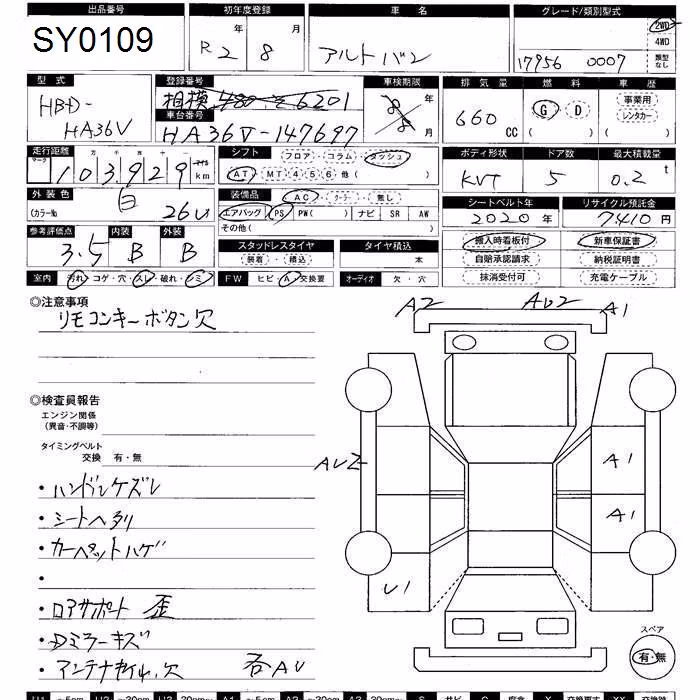 出品番号 初年度登録 車名 グレード/類別型式
SY0109 R2年 8月 アルトバン 17956 0007 2WD 4WD 類型なし
型式 登録番号 車検期限 排気量 燃料 車歴
HBD-HA36V 相模 480 そ 6201 年 月 660CC G・D ( ) 事業用 レンタカー ( )
車台番号
HA36V-147697
走行距離 シフト フロア・コラム・ダッシュ ボディ形状 ドア数 最大積載量
マーク 十 万 千 百 十 一 マイル
103929km AT・MT 4 5 6 他( ) KVT 5 0.2t
外装色 装備品 AC・クーラー・無し シートベルト年 リサイクル預託金
(カラーNo 白 26U エアバッグ PS PW( ) ナビ SR AW 2020年 7410円
その他( )
参考評価点 内装 外装 スタッドレスタイヤ タイヤ積込 搬入時看板付 新車保証書
3.5 B B 装着・積込 本 自賠承認請求 納税証明書
室内 汚れ・コゲ・穴・スレ・破れ・シミ FW ヒビ・A・交換要 オーディオ 欠・穴 抹消受付可 充電ケーブル
◎注意事項 A2 AU2 A1
リモコンキーボタン欠
◎検査員報告
エンジン関係
(異音・不調等)
タイミングベルト
交換 有・無
AU2 A1
・ハンドルケズレ
・シートヘタリ A1
・カーペットハゲ
・
U1
・ロアサポート 歪
・Dミラーキズ スペア
・アンテナ 欠 各AU 有・無